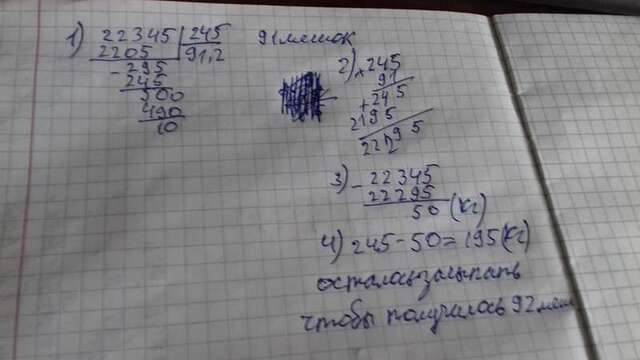 1) 22345 | 245
2205 | 91,2
- 295
245
500
490
10
91 мешок
2) × 245
91
+ 245
2195
22295
3) - 22345
22295
50 (кг)
4) 245-50=195(кг)
осталось засыпать
чтобы получилось 92 меш